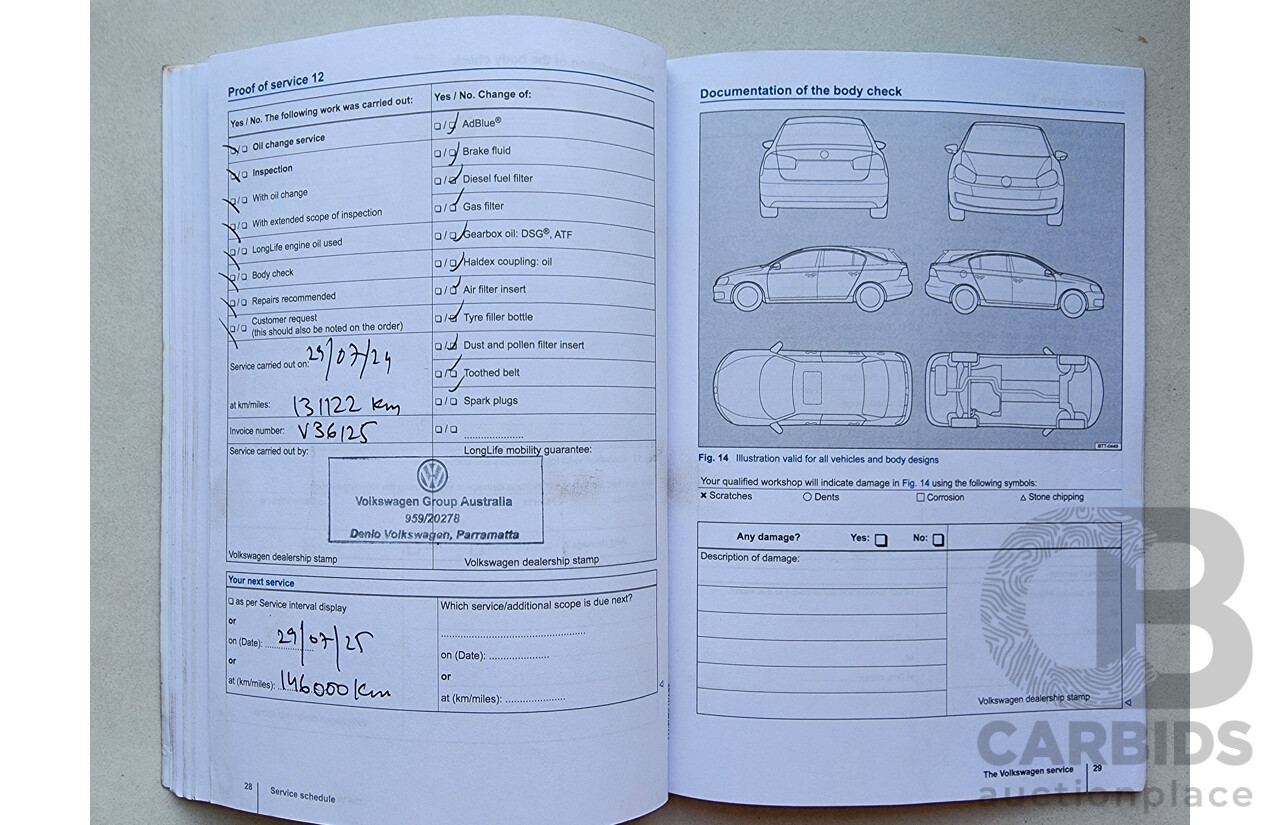 Proof of service 12
Yes / No. The following work was carried out:
Yes / No. Change of:
☐/☐ Oil change service
☐/☐ Inspection
☐/☐ With oil change
☐/☐ With extended scope of inspection
☐/☐ LongLife engine oil used
☐/☐ Body check
☐/☐ Repairs recommended
☐/☐ Customer request
(this should also be noted on the order)
Service carried out on: 29/07/24
at km/miles: 131122 km
Invoice number: V36125
Service carried out by:
☐/☐ AdBlue®
☐/☐ Brake fluid
☐/☐ Diesel fuel filter
☐/☐ Gas filter
☐/☐ Gearbox oil: DSG®, ATF
☐/☐ Haldex coupling: oil
☐/☐ Air filter insert
☐/☐ Tyre filler bottle
☐/☐ Dust and pollen filter insert
☐/☐ Toothed belt
☐/☐ Spark plugs
☐/☐ ....................
LongLife mobility guarantee:
Volkswagen Group Australia
959/20278
Denlo Volkswagen, Parramatta
Volkswagen dealership stamp
Volkswagen dealership stamp
Your next service
☐ as per Service interval display
or
on (Date): 29/07/25
or
at (km/miles): 146000 km
Which service/additional scope is due next?
on (Date): ....................
or
at (km/miles): ....................
28 Service schedule
Documentation of the body check
B7T-0449
Fig. 14 Illustration valid for all vehicles and body designs
Your qualified workshop will indicate damage in Fig. 14 using the following symbols:
× Scratches ○ Dents ☐ Corrosion △ Stone chipping
Any damage? Yes: ☐ No: ☐
Description of damage:
Volkswagen dealership stamp
The Volkswagen service 29
CB
CARBIDS
auctionplace